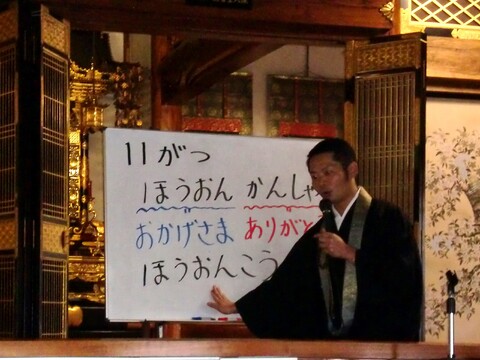 11がつ
ほうおん かんしゃ
おかげさま ありがと
ほうおんこう